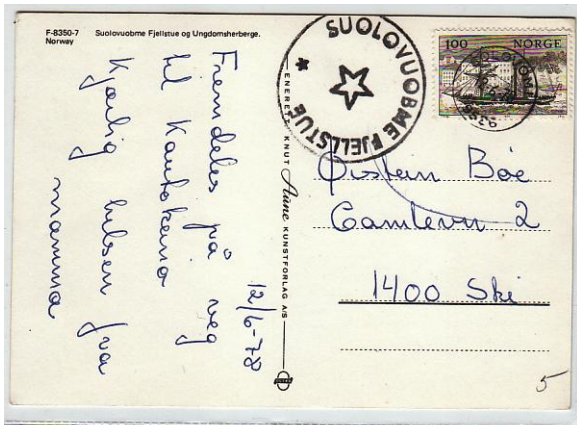 F-8350-7 Suolovuobme Fjellstue og Ungdomsherberge.
Norway
12/6-78
Fremdeles på veg
til Kautokeino
Kjærlig hilsen fra
mamma
ENERETT: KNUT Aune KUNSTFORLAG A/S
SUOLOVUOBME FJELLSTUE *
100 NORGE
Øistein Bøe
Gamlevn 2
1400 Ski
5